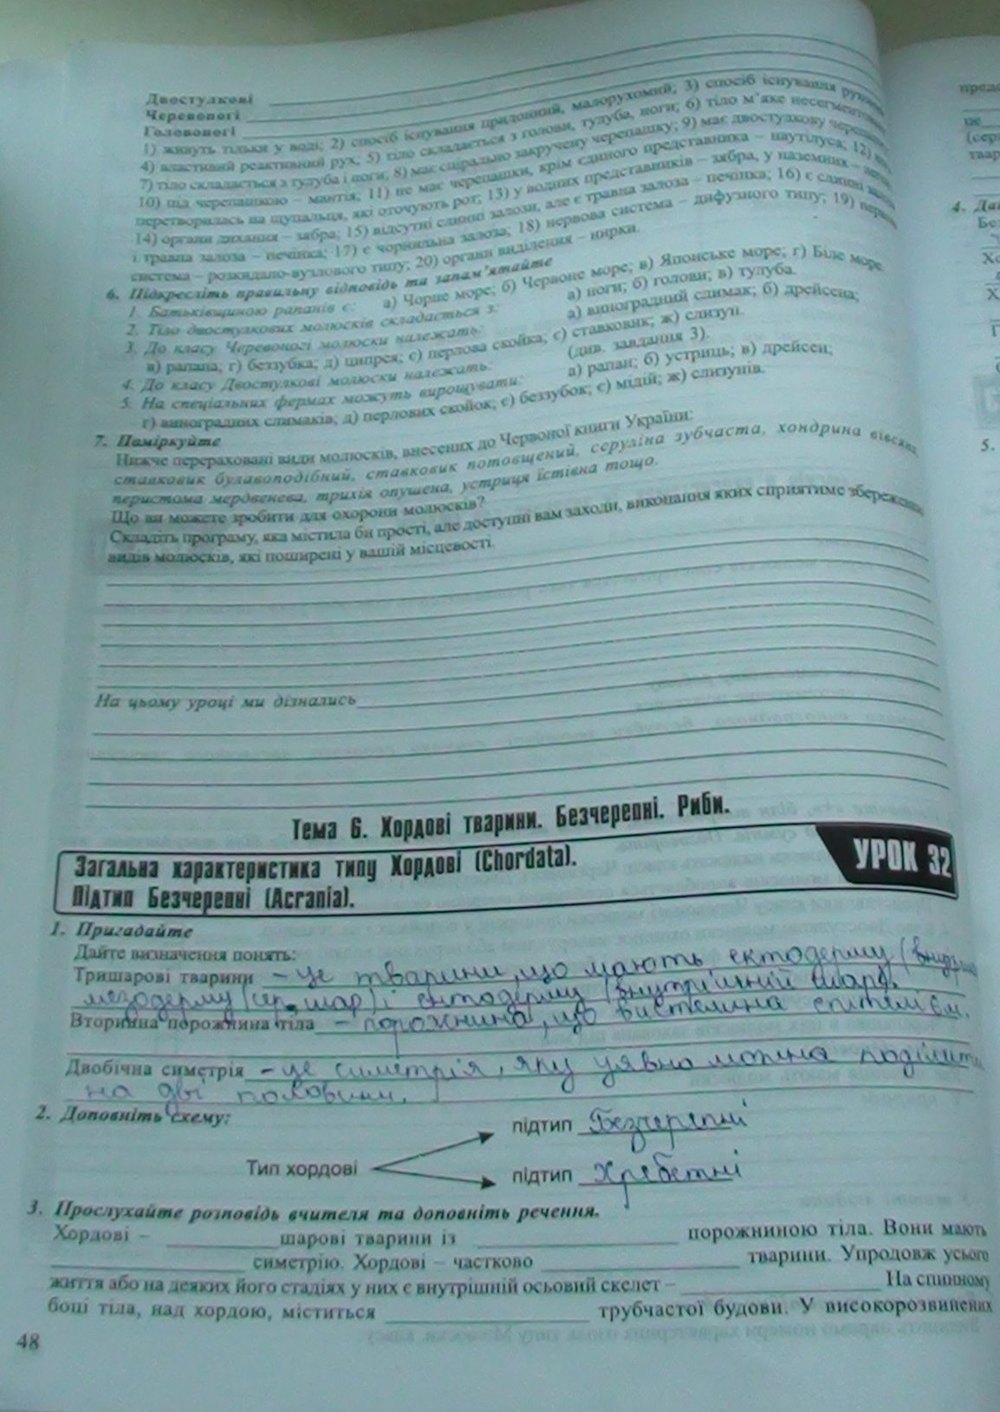 Двостулкові
Черевоногі
Головоногі
1) живуть тільки у воді; 2) спосіб існування придонний, малорухомий; 3) спосіб існування
4) властивий реактивний рух; 5) тіло складається з голови, тулуба, ноги; 6) тіло м'яке
7) тіло складається з тулуба і ноги; 8) має спірально закручену черепашку; 9) має двостулкову
10) під черепашкою – мантія; 11) не має черепашки, крім єдиного представника – наутілуса; 12)
перетворилась на щупальця, які оточують рот; 13) у водних представників – зябра, у наземних –
14) органи дихання – зябра; 15) відсутні слинні залози, але є травна залоза – печінка; 16) є слинні
і травна залоза – печінка; 17) є чорнильна залоза; 18) нервова система – дифузного типу; 19)
система – розкидано-вузлового типу; 20) органи виділення – нирки.
6. Підкресліть правильну відповідь та запам'ятайте
1. Батьківщиною рапанів є: а) Чорне море; б) Червоне море; в) Японське море; г) Біле море.
2. Тіло двостулкових молюсків складається з: а) ноги; б) голови; в) тулуба.
3. До класу Черевоногі молюски належать: а) виноградний слимак; б) дрейсена;
в) рапана; г) беззубка; д) ципрея; е) перлова скойка; є) ставковик; ж) слизун.
4. До класу Двостулкові молюски належать: (див. завдання 3).
5. На спеціальних фермах можуть вирощувати: а) рапан; б) устриць; в) дрейсен;
г) виноградних слимаків; д) перлових скойок; е) беззубок; є) мідій; ж) слизунів.
7. Поміркуйте
Нижче перераховані види молюсків, внесених до Червоної книги України:
ставковик булавоподібний, ставковик потовщений, серуліна зубчаста, хондрина
перистома мердвенева, трихія опушена, устриця їстівна тощо.
Що ви можете зробити для охорони молюсків?
Складіть програму, яка містила би прості, але доступні вам заходи, виконання яких сприятиме
видів молюсків, які поширені у вашій місцевості.
На цьому уроці ми дізнались
Тема 6. Хордові тварини. Безчерепні. Риби.
Загальна характеристика типу Хордові (Chordata).
Підтип Безчерепні (Acrania).
УРОК 32
1. Пригадайте
Дайте визначення понять:
Тришарові тварини – це тварини, що мають ектодерму
мезодерму (сер. шар) і ентодерму (внутрішній шар).
Вторинна порожнина тіла – порожнина, що вистелина епітелієм.
Двобічна симетрія – це симетрія, яку уявно можна поділити
на дві половини.
2. Доповніть схему:
підтип Безчерепні
Тип хордові
підтип Хребетні
3. Прослухайте розповідь вчителя та доповніть речення.
Хордові – шарові тварини із порожниною тіла. Вони мають
симетрію. Хордові – частково тварини. Упродовж усього
життя або на деяких його стадіях у них є внутрішній осьовий скелет – На спинному
боці тіла, над хордою, міститься трубчастої будови. У високорозвинених
48
4.
5.